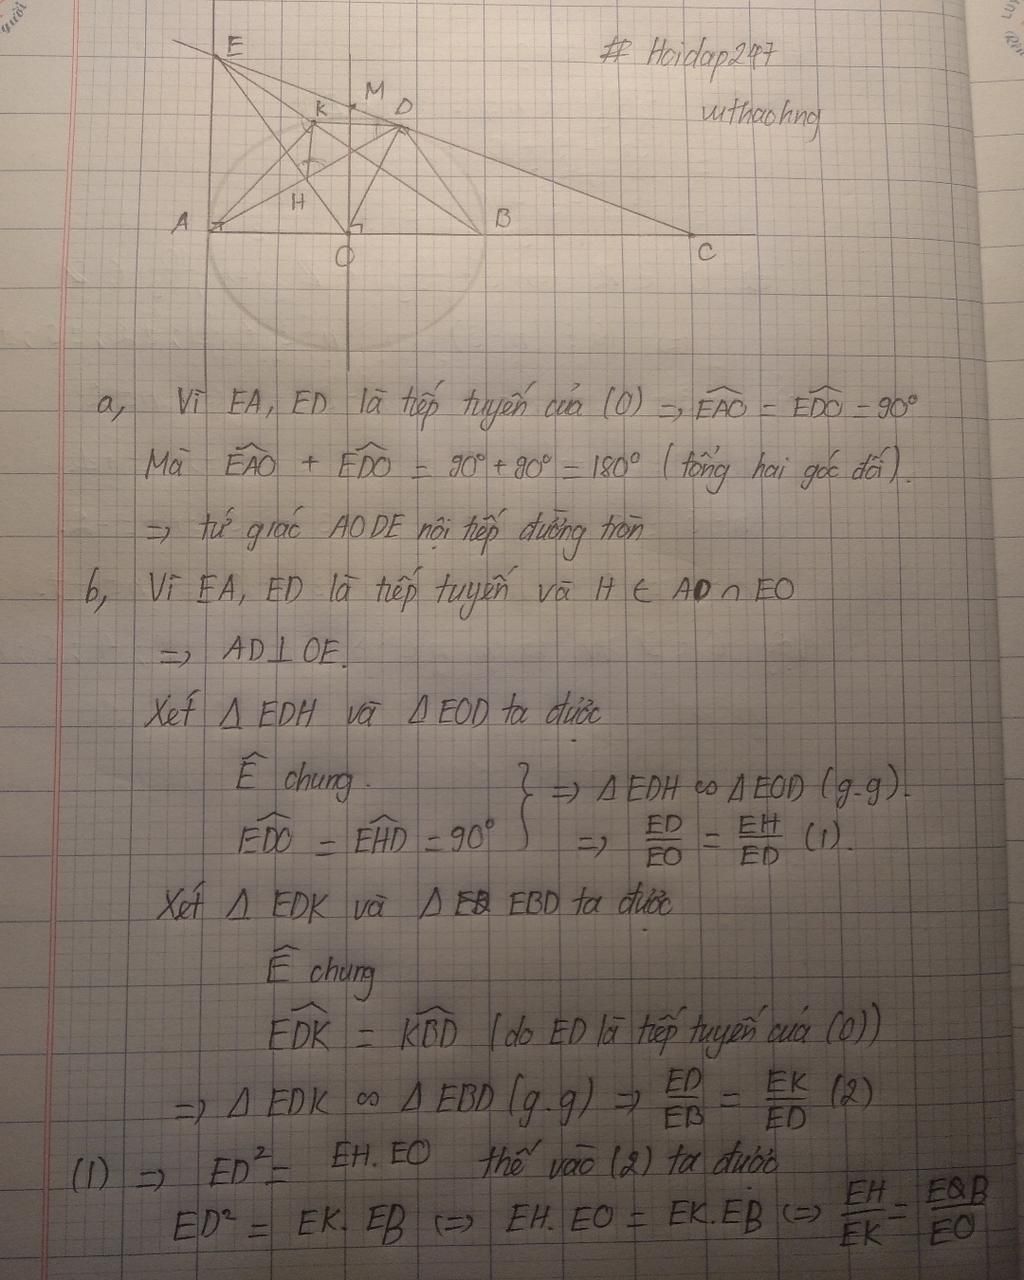 E
M
K
D
H
A
B
O
C
# Hoidap247
vuthaohng
a, Vì EA, ED là tiếp tuyến của (O) => \widehat{EAO} = \widehat{EDO} = 90°
Mà \widehat{EAO} + \widehat{EDO} = 90° + 90° = 180° (tổng hai góc đối).
=> tứ giác AODE nội tiếp đường tròn
b, Vì EA, ED là tiếp tuyến và H ∈ AD ∩ EO
=> AD ⊥ OE.
Xét Δ EDH và Δ EOD ta được
Ê chung.
\widehat{EDO} = \widehat{EHD} = 90°
} => Δ EDH ∽ Δ EOD (g.g).
=> ED/EO = EH/ED (1).
Xét Δ EDK và Δ EBD ta được
Ê chung
\widehat{EDK} = \widehat{KBD} (do ED là tiếp tuyến của (O))
=> Δ EDK ∽ Δ EBD (g.g) => ED/EB = EK/ED (2)
(1) => ED² = EH.EO thế vào (2) ta được
ED² = EK.EB <=> EH.EO = EK.EB <=> EH/EK = EB/EO